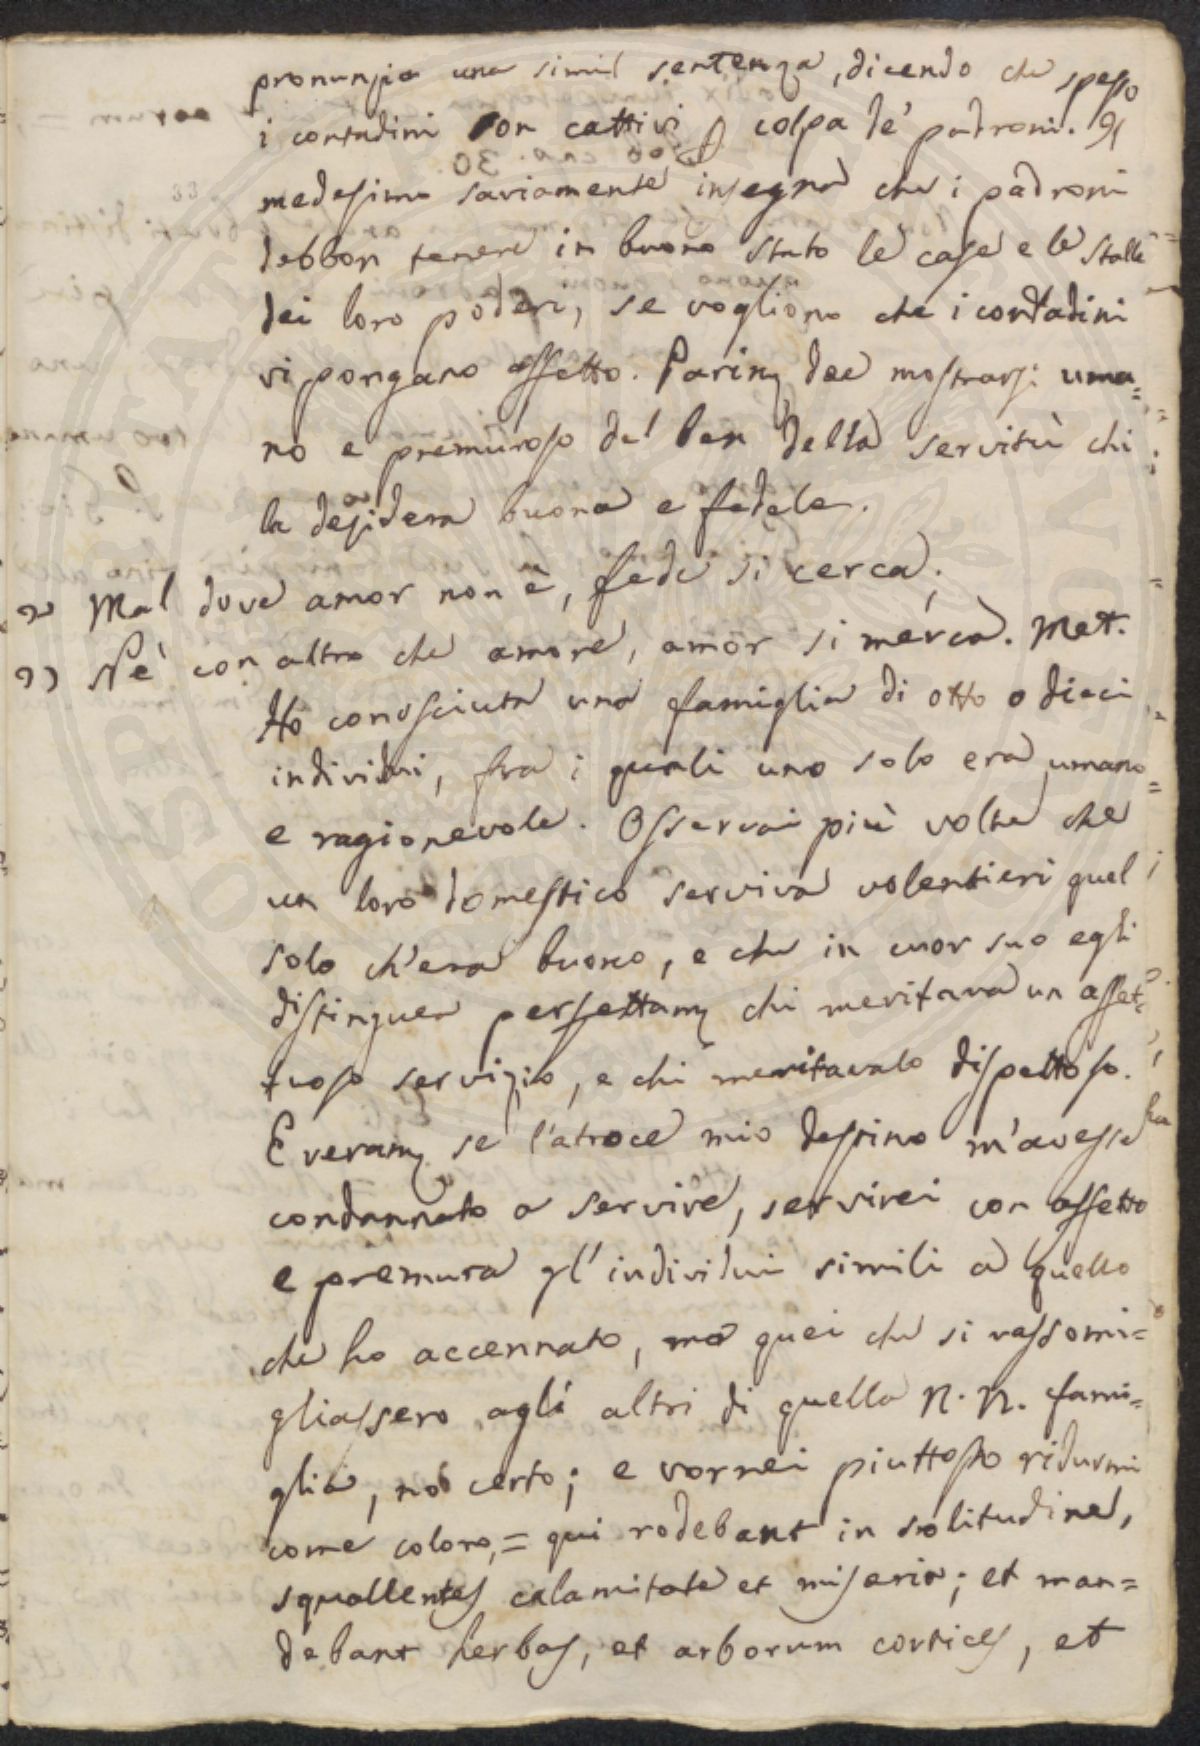 pronunzia una simil sentenza, dicendo che spesso
i contadini son cattivi ꝑ colpa de' padroni. Il
medesimo saviamente insegna che i padroni
debbon tenere in buono stato le case e le stalle
dei loro poderi, se vogliono che i contadini
vi pongano affetto. Parimẓ dee mostrarsi uma=
no e premuroso del ben della servitù chi
la desidera buona e fedele.
" Mal dove amor non è, fede si cerca;
" Nè con altro che amore, amor si merca. Met.
Ho conosciuta una famiglia di otto o dieci
individui, fra i quali uno solo era umano
e ragionevole. Osservai più volte che
un loro domestico serviva volentieri quel
solo ch'era buono, e che in cuor suo egli
distinguea perfettamẓ chi meritava un affet=
tuoso servizio, e chi meritavalo dispettoso.
E veramẓ se l'atroce mio destino m'avesse
condannato a servire, servirei con affetto
e premura gl'individui simili a quello
che ho accennato, ma quei che si rassomi=
gliassero agli altri di quella N. N. fami=
glia, no certo; e vorrei piuttosto ridurmi
come coloro, = qui rodebant in solitudine,
squallentes calamitate et miseria; et man=
debant herbas, et arborum cortices, et